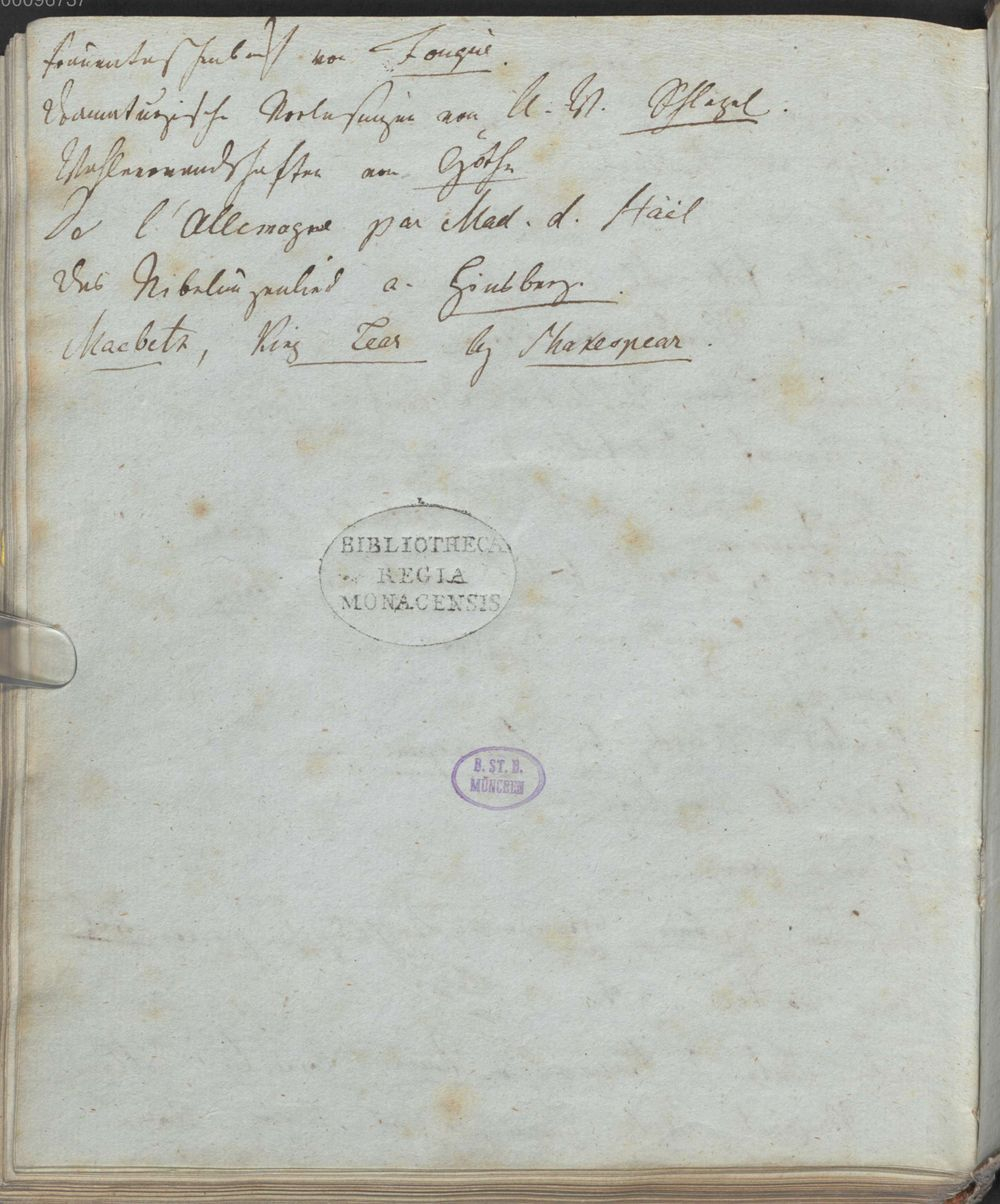 00096737
Frauentaschenbuch von Fouqué.
Dramaturgische Vorlesungen von A. W. Schlegel.
Wahlverwandschaften von Göthe
De l'Allemagne par Mad. d. Stäel
Das Nibelungenlied v. Hinsberg.
Macbeth, King Lear by Shakespear.
BIBLIOTHECA
REGIA
MONACENSIS
B. ST. B.
MÜNCHEN